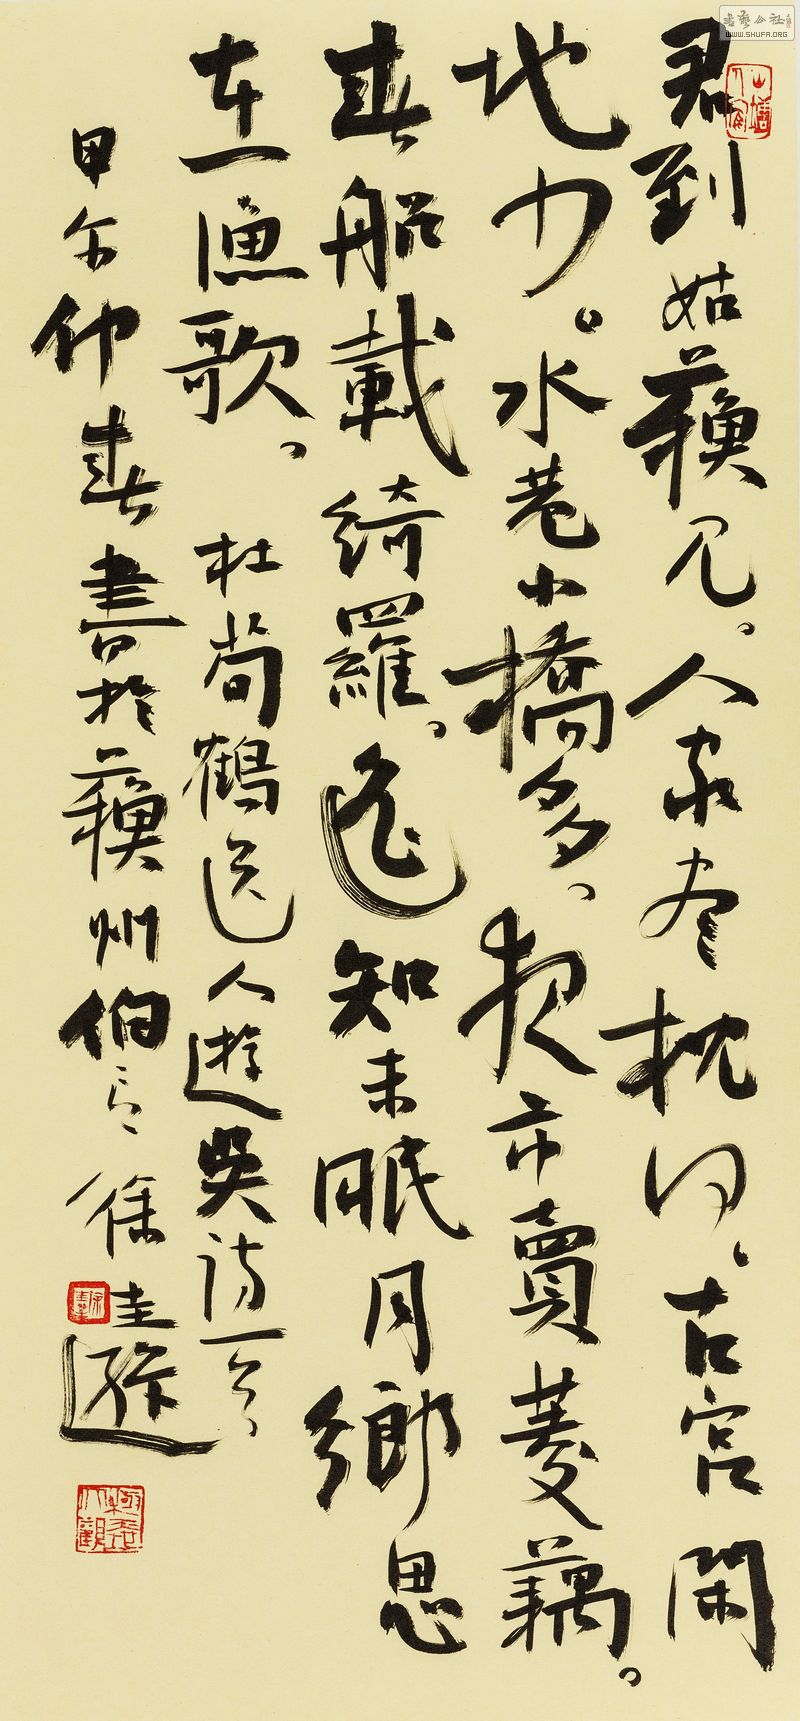 君到姑蘇見。人家盡枕河。古宮閑
地少。水巷小橋多。夜市賣菱藕。
春船載綺羅。遙知未眠月鄉思
在漁歌。
杜荀鶴送人遊吳詩一首
甲午仲春書於蘇州 徐圭遜
書藝公社
WWW.SHUFA.ORG